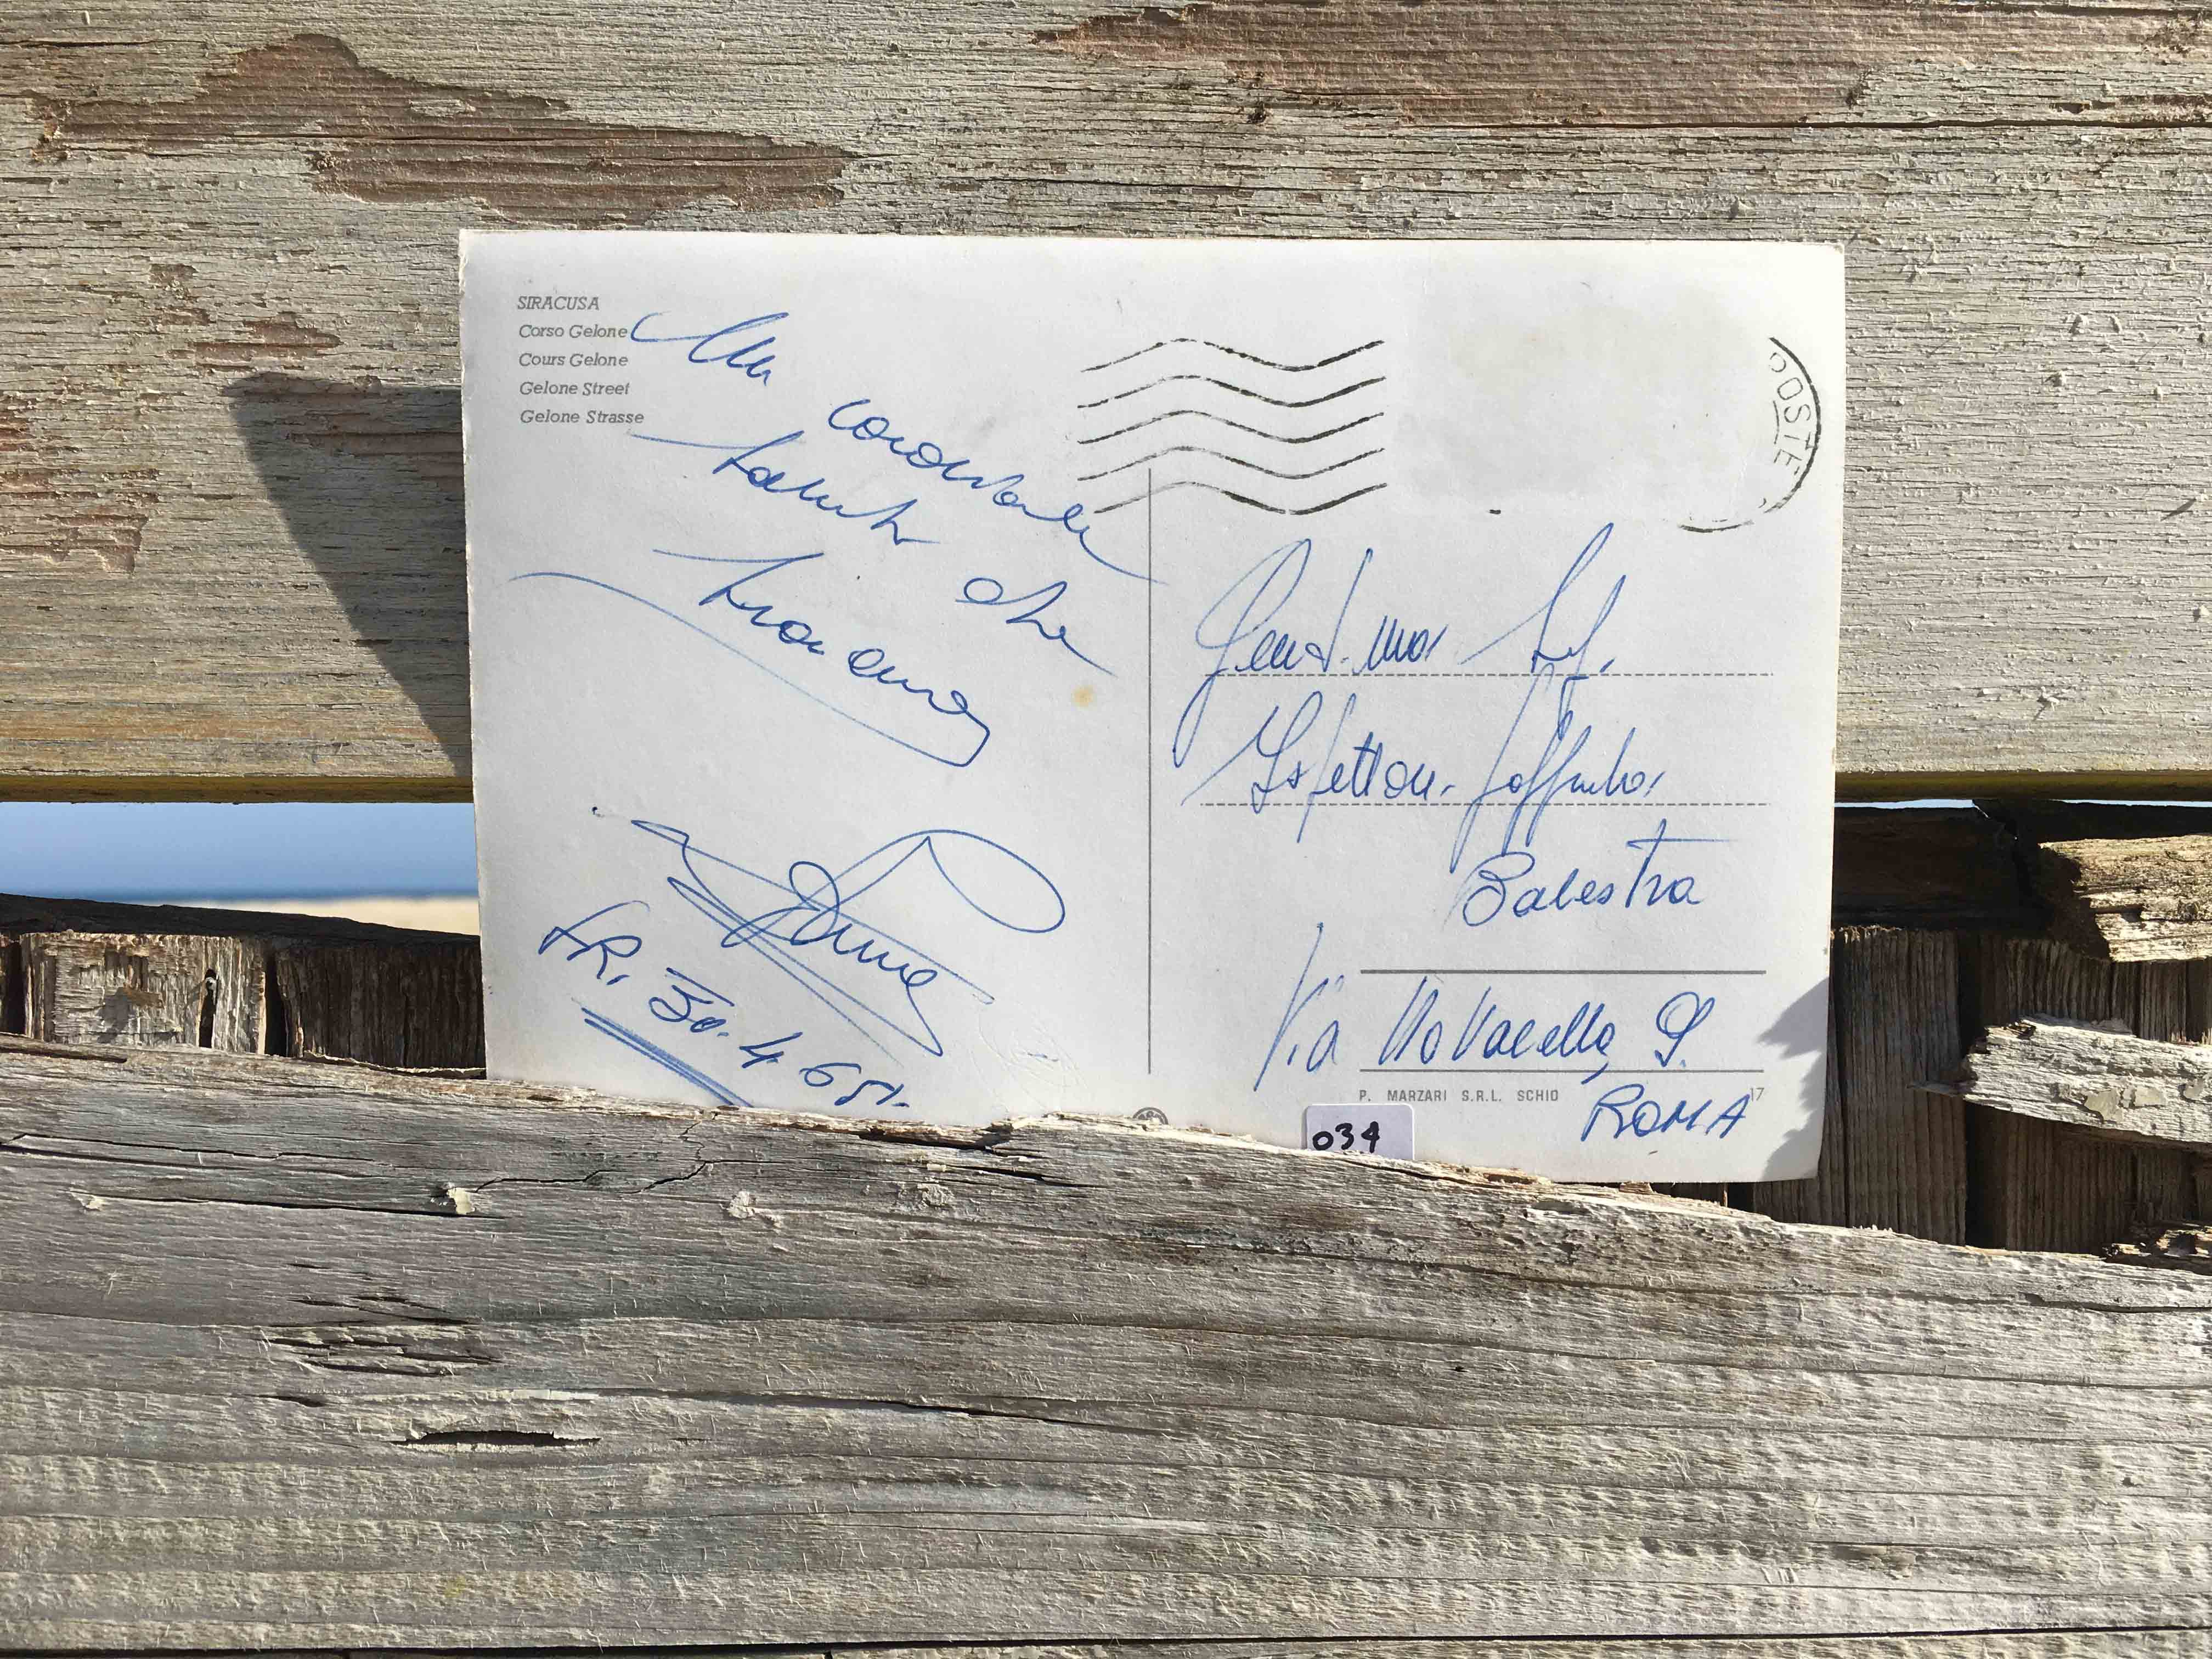 SIRACUSA
Corso Gelone
Cours Gelone
Gelone Street
Gelone Strasse
Un cordiale
saluto da
Siracusa
SR. 30.4.65
POSTE
Gent.ma Sig.
Balestra
Via Novacella, 9.
ROMA
P. MARZARI S.R.L. SCHIO 17
034